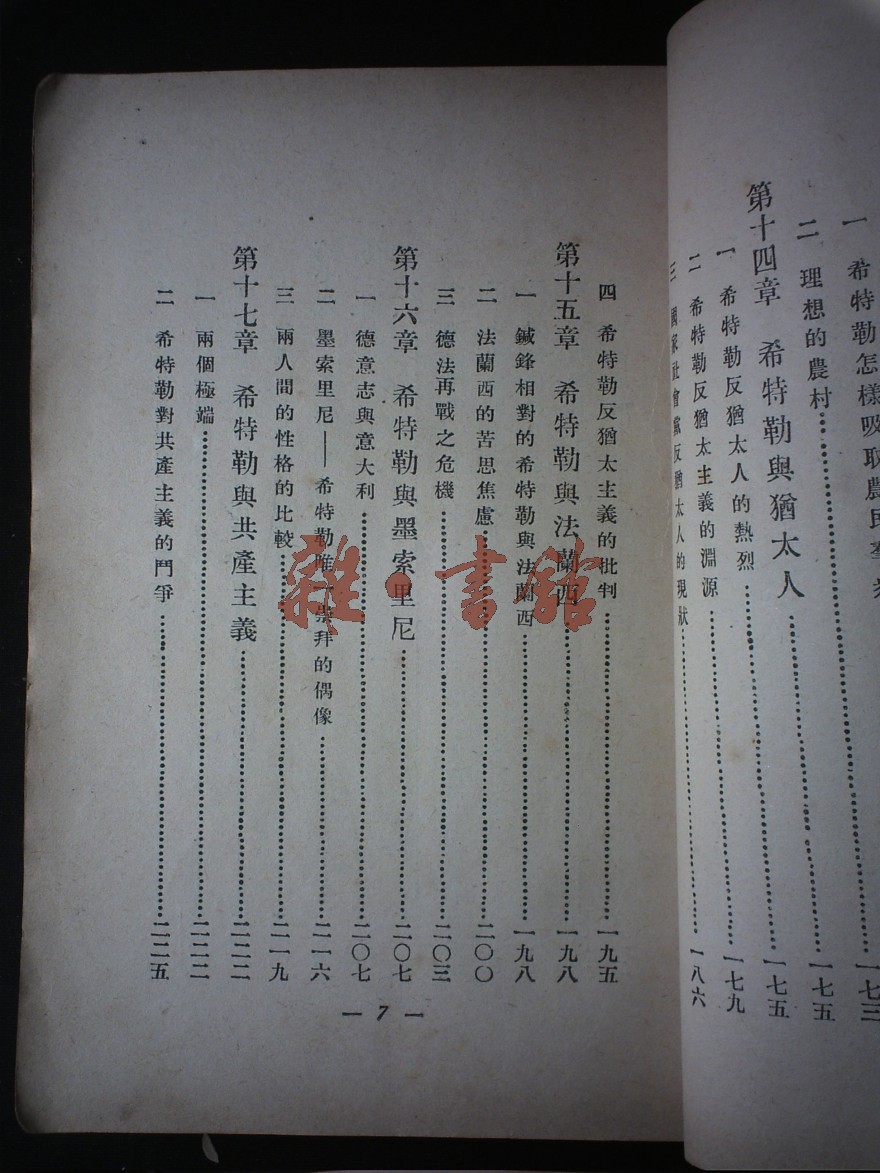 一 希特勒怎樣吸取農民羣
二 理想的農村……一七三
第十四章 希特勒與猶太人……一七五
一 希特勒反猶太人的熱烈……一七五
二 希特勒反猶太主義的淵源……一七九
三 國家社會黨反猶太人的現狀……一八六
四 希特勒反猶太主義的批判……一九五
第十五章 希特勒與法蘭西……一九八
一 鍼鋒相對的希特勒與法蘭西……一九八
二 法蘭西的苦思焦慮……二〇〇
三 德法再戰之危機……二〇三
第十六章 希特勒與墨索里尼……二〇七
一 德意志與意大利……二〇七
二 墨索里尼——希特勒唯一崇拜的偶像……二一六
三 兩人間的性格的比較……二一九
第十七章 希特勒與共產主義……二二二
一 兩個極端……二二二
二 希特勒對共產主義的鬥爭……二二五
— 7 —
雜·書館